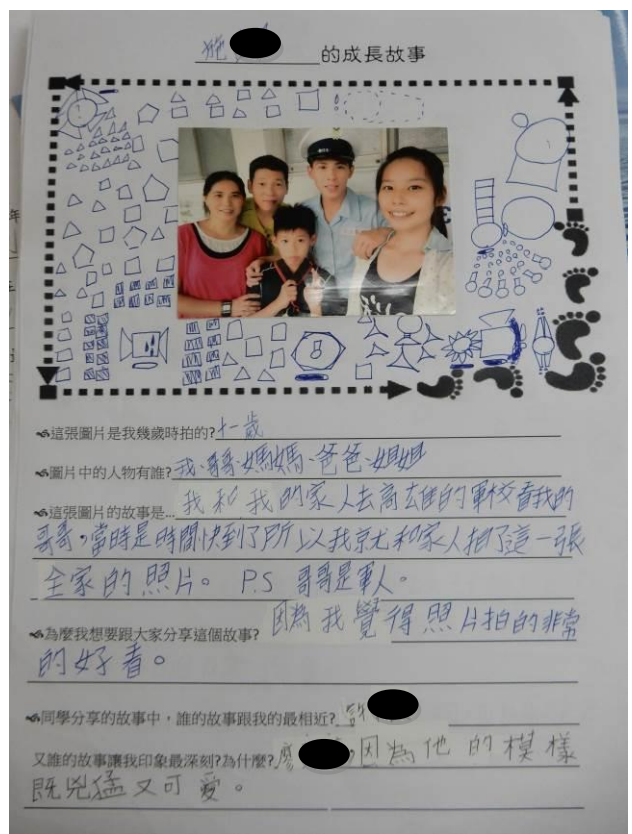 施 的成長故事
這張圖片是我幾歲時拍的?十一歲
圖片中的人物有誰?我、哥哥、媽媽、爸爸、姐姐
這張圖片的故事是...我和我的家人去高雄的軍校看我的
哥哥,當時是時間快到了所以我就和家人拍了這一張
全家的照片。 P.S 哥哥是軍人。
為麼我想要跟大家分享這個故事? 因為我覺得照片拍的非常
的好看。
同學分享的故事中,誰的故事跟我的最相近?
又誰的故事讓我印象最深刻?為什麼? 因為他的模樣
既兇猛又可愛。